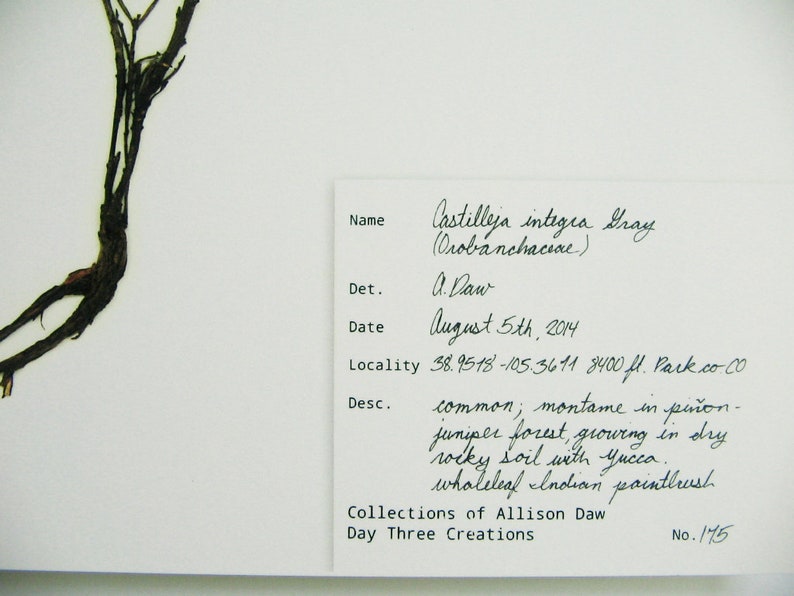 Name Castilleja integra Gray
(Orobanchaceae)
Det. A. Daw
Date August 5th, 2014
Locality 38.9518 -105.3611 8400 ft. Park co. CO
Desc. common; montane in piñon-
juniper forest, growing in dry
rocky soil with Yucca.
wholeleaf Indian paintbrush
Collections of Allison Daw
Day Three Creations No. 175